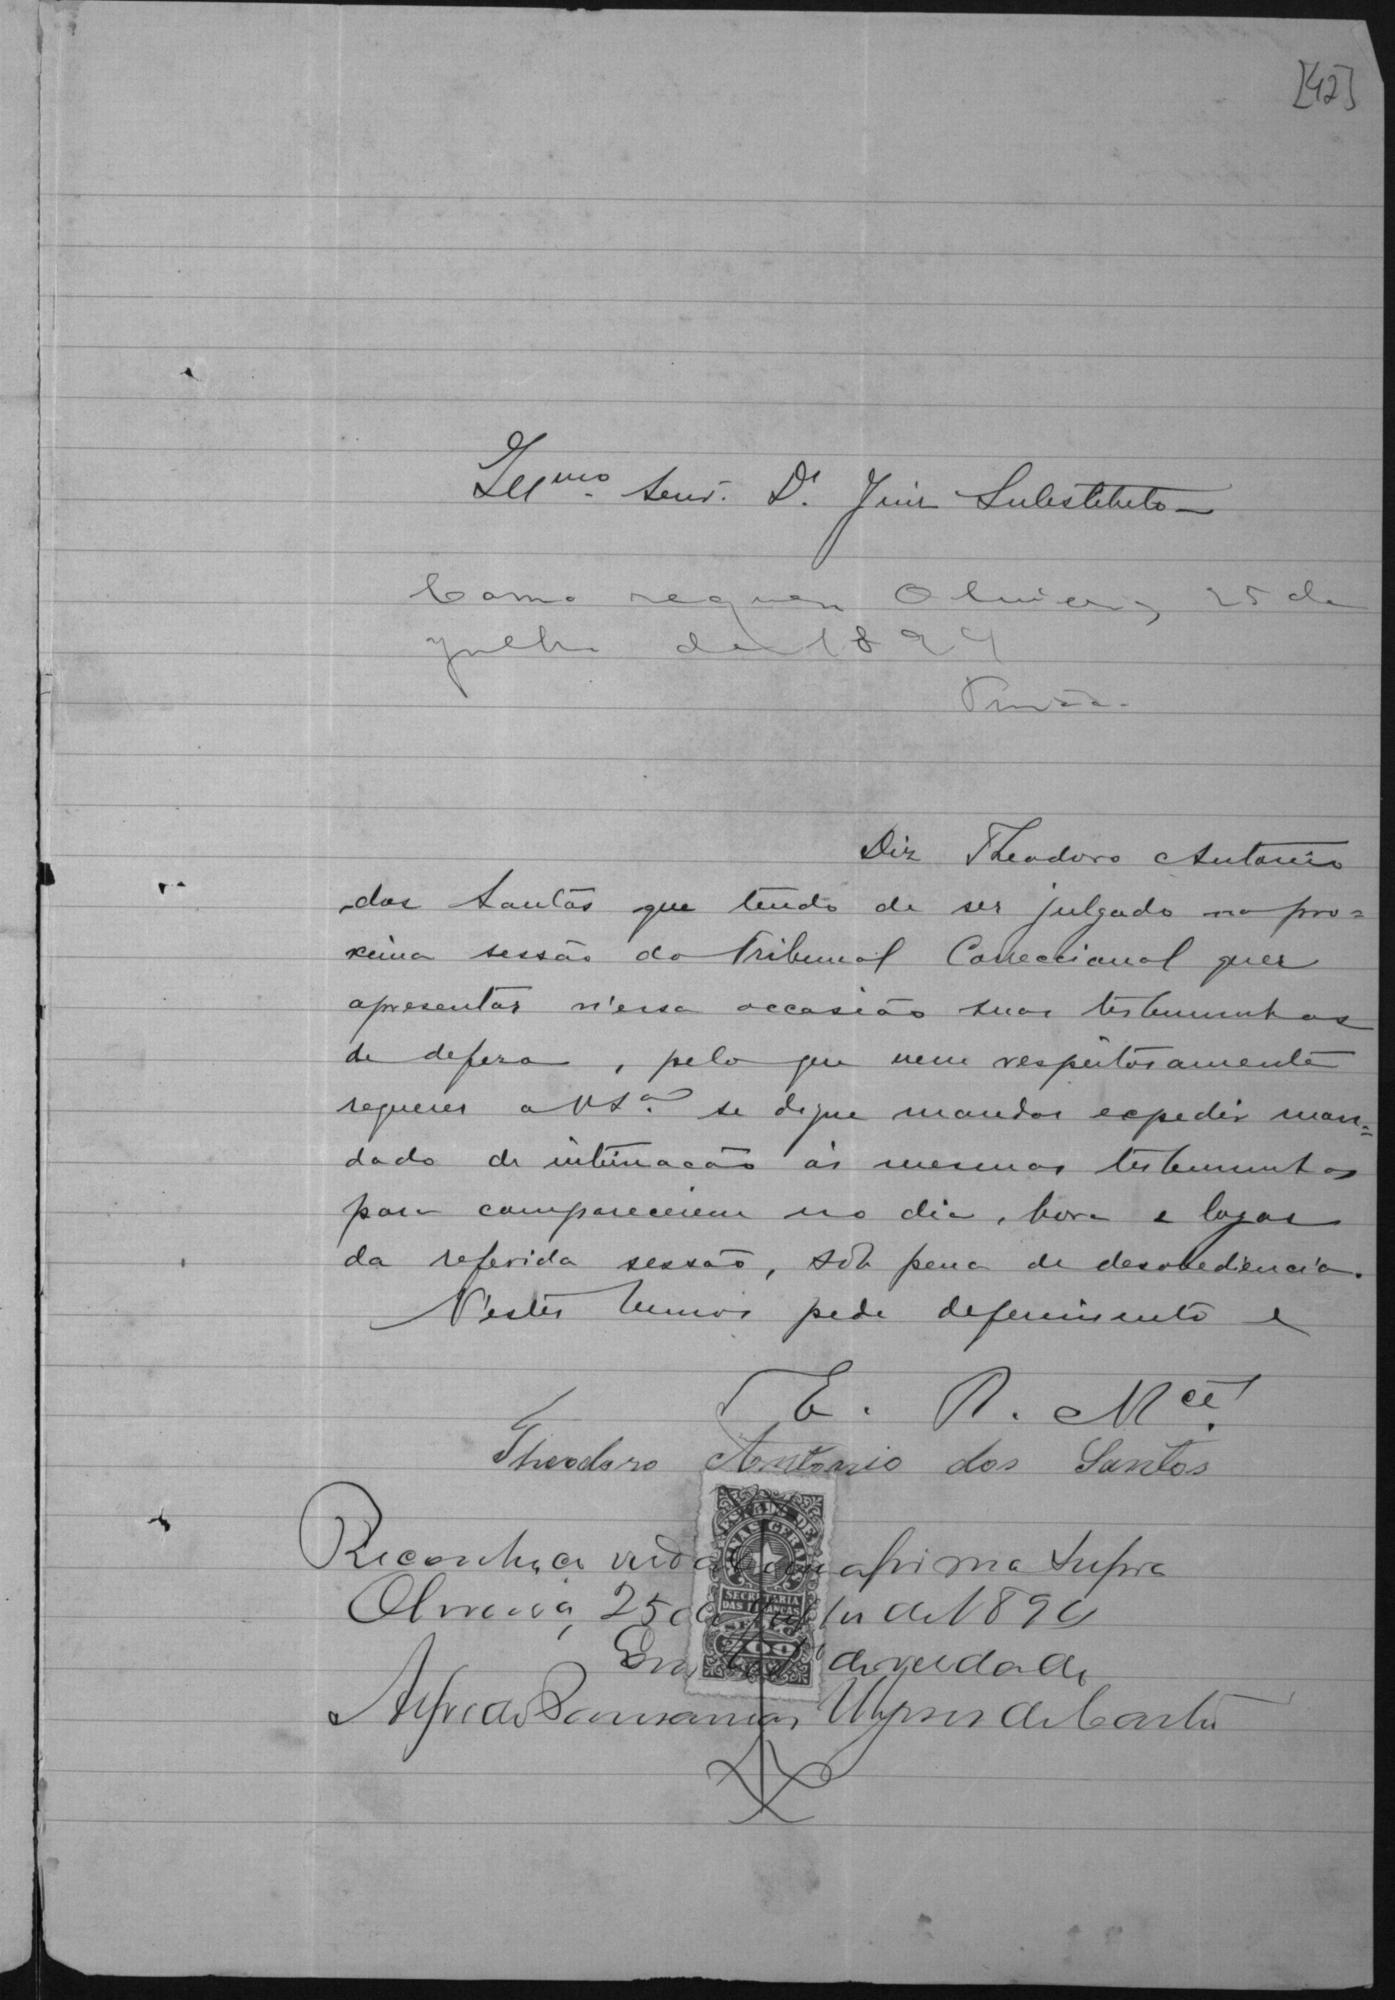 [42]
Illmo. Senr. Dr. Juiz Substituto
Como requer Oliveira, 25 de
julho de 1894
Diz Theodoro Antonio
dos Santos que tendo de ser julgado na pro=
xima sessão do Tribunal Correccional quer
apresentar n'essa occasião suas testemunhas
de defeza, pelo que vem respeitosamente
requerer a VSa. se digne mandar expedir man=
dado de intimação ás mesmas testemunhas
para comparecerem no dia, hora e logar
da referida sessão, sob pena de desobediencia.
N'estes termos pede deferimento e
E. R. Mcê.
Theodoro Antonio dos Santos
ESTADO DE
MINAS GERAES
SECRETARIA
DAS FINANÇAS
SELLO
Reconheço verdadeira a firma supra
Oliveira, 25 de Julho de 1894
Em testo de verdade
Alfredo Ulysses de Castro